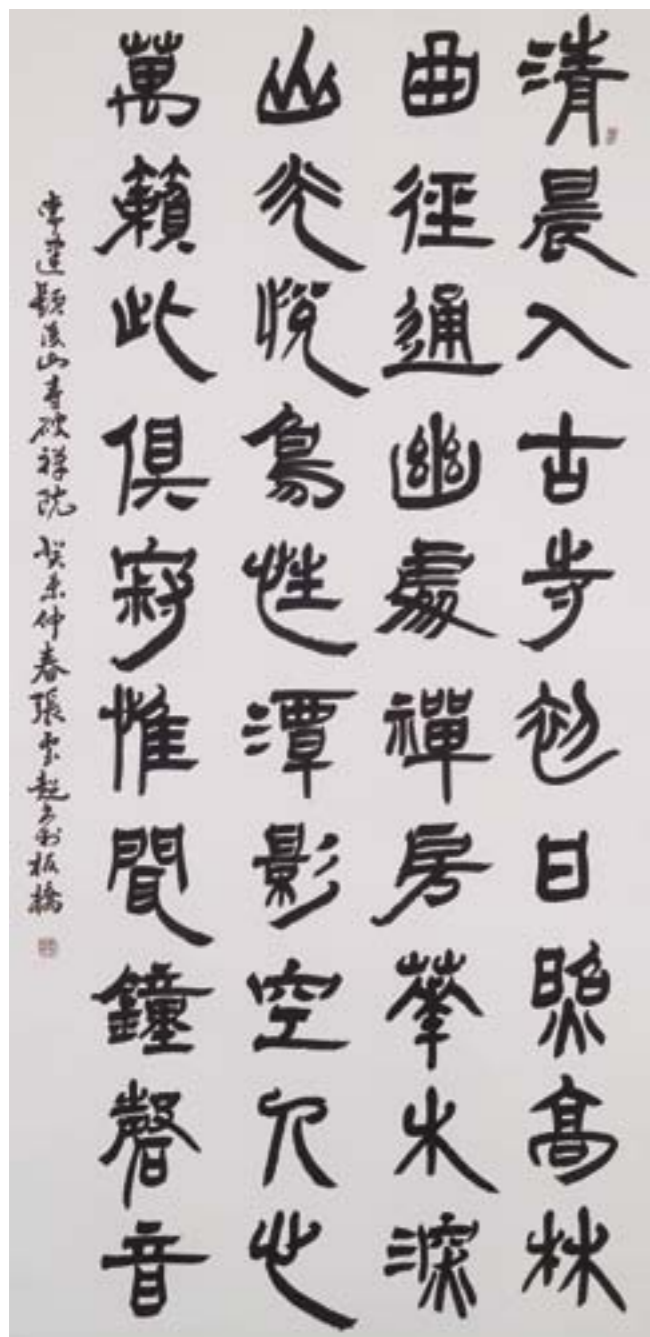 清晨入古寺初日照高林
曲徑通幽處禪房華木深
山光悅鳥性潭影空人心
萬籟此俱寂惟聞鐘磬音
常建題後山寺破禪院 癸未仲春張雲超 板橋